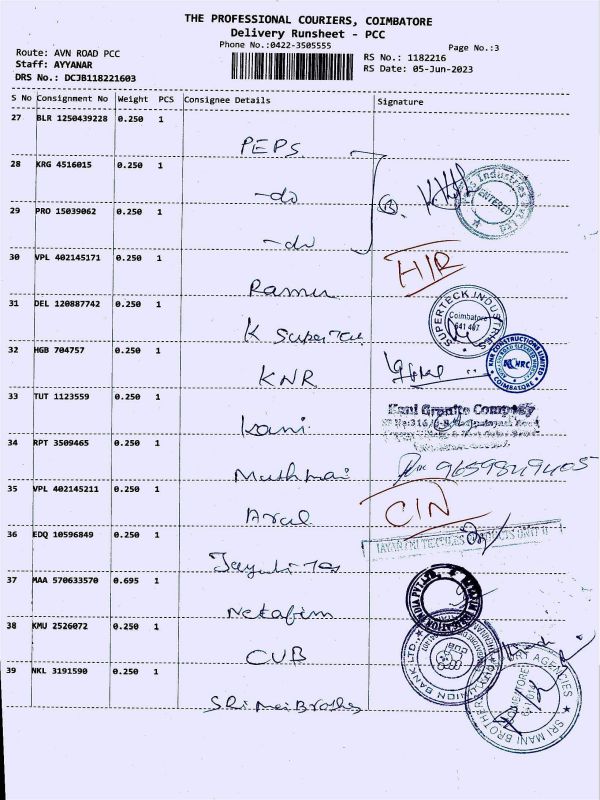 THE PROFESSIONAL COURIERS, COIMBATORE
Delivery Runsheet - PCC
Phone No.:0422-3505555
Page No.:3
Route: AVN ROAD PCC
Staff: AYYANAR
DRS No.: DCJB118221603
RS No.: 1182216
RS Date: 05-Jun-2023
S No Consignment No Weight PCS Consignee Details Signature
27 BLR 1250439228 0.250 1
PEPS
28 KRG 4516015 0.250 1
-do
29 PRO 15039062 0.250 1
-do
ENTERED
30 VPL 402145171 0.250 1
Ramu
H/R
31 DEL 120887742 0.250 1
K Super Tec
SUPERTECK INDUSTRIES
Coimbatore
641 407
32 HGB 704757 0.250 1
KNR
KNR CONSTRUCTIONS LIMITED
COIMBATORE
33 TUT 1123559 0.250 1
Kani
Kani Granite Company
34 RPT 3509465 0.250 1
Muthmai
35 VPL 402145211 0.250 1
Arul
C/N
36 EDQ 10596849 0.250 1
Jayali Tex
37 MAA 570633570 0.695 1
Netafim
38 KMU 2526072 0.250 1
CUB
CITY UNION BANK LTD.
39 NKL 3191590 0.250 1
Sri Mani Brothers
SRI MANI BROTHERS
AGENCIES